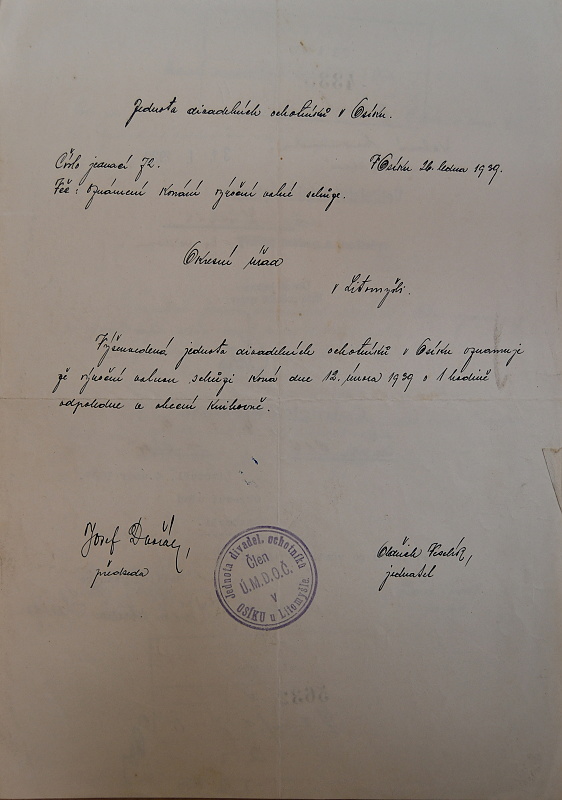 Jednota divadelních ochotníků v Osíku.
Číslo jednací 72.
V Osíku 26. ledna 1939.
Věc: oznámení konání výroční valné schůze.
Okresní úřad
v Litomyšli.
Výšeuvedená jednota divadelních ochotníků v Osíku oznamuje
že výroční valnou schůzi koná dne 12. února 1939 o 1 hodině
odpoledne v obecní knihovně.
Josef Dvořák,
předseda
Jednota divadel. ochotníků
Člen
Ú.M.D.O.Č.
v
OSÍKU u Litomyšle.
Oldřich
jednatel